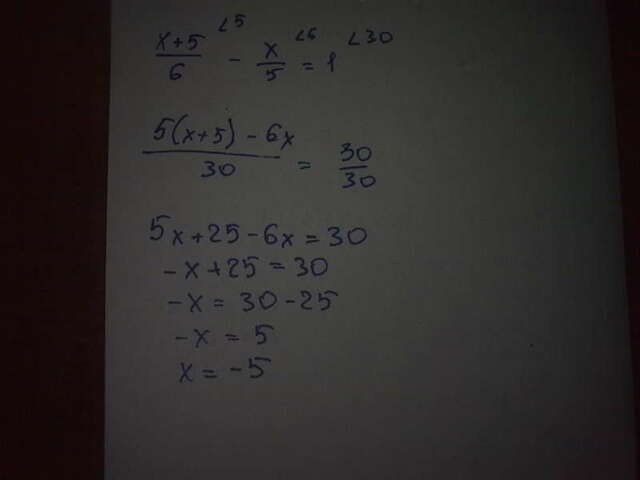 (x+5)/6 ∠5 - x/5 ∠6 = 1 ∠30
(5(x+5) - 6x)/30 = 30/30
5x+25-6x=30
-x+25=30
-x=30-25
-x=5
x=-5